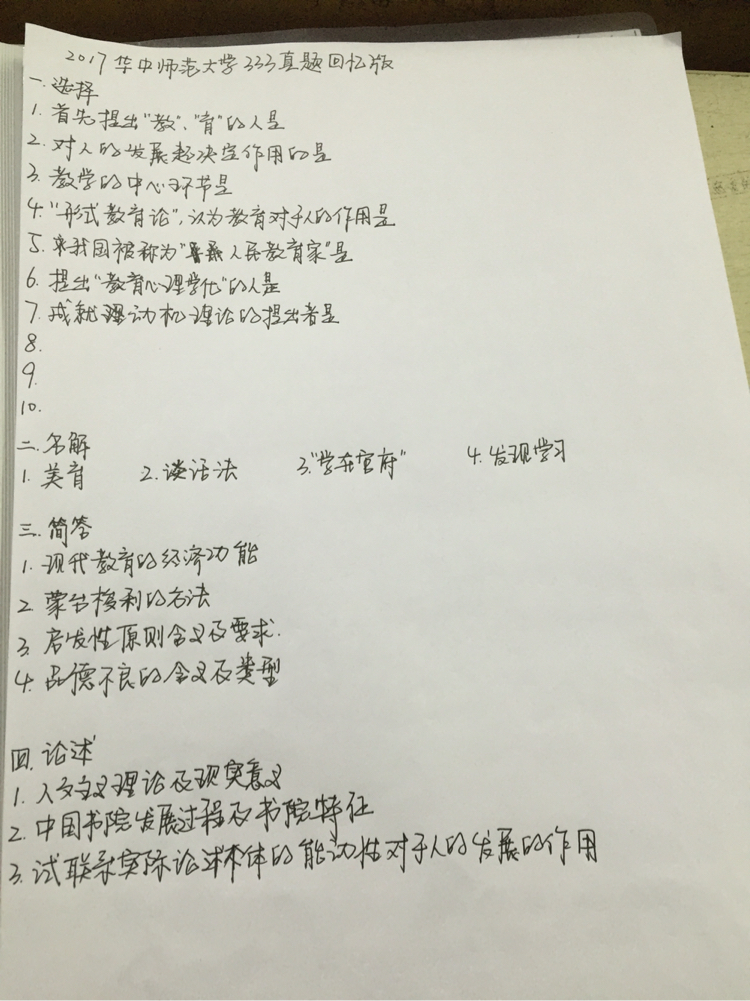 2017华中师范大学333真题回忆版
一.选择
1.首先提出"教"、"育"的人是
2.对人的发展起决定作用的是
3.教学的中心环节是
4."形式教育论",认为教育对于人的作用是
5.来我国被称为"人民教育家"是
6.提出"教育心理学化"的人是
7.成就动机理论的提出者是
8.
9.
10.
二.名解
1.美育 2.谈话法 3."学在官府" 4.发现学习
三.简答
1.现代教育的经济功能
2.蒙台梭利的方法
3.启发性原则含义及要求.
4.品德不良的含义及类型
四.论述
1.人文主义理论及现实意义
2.中国书院发展过程及书院特征
3.试联系实际论述本体的能动性对于人的发展的作用